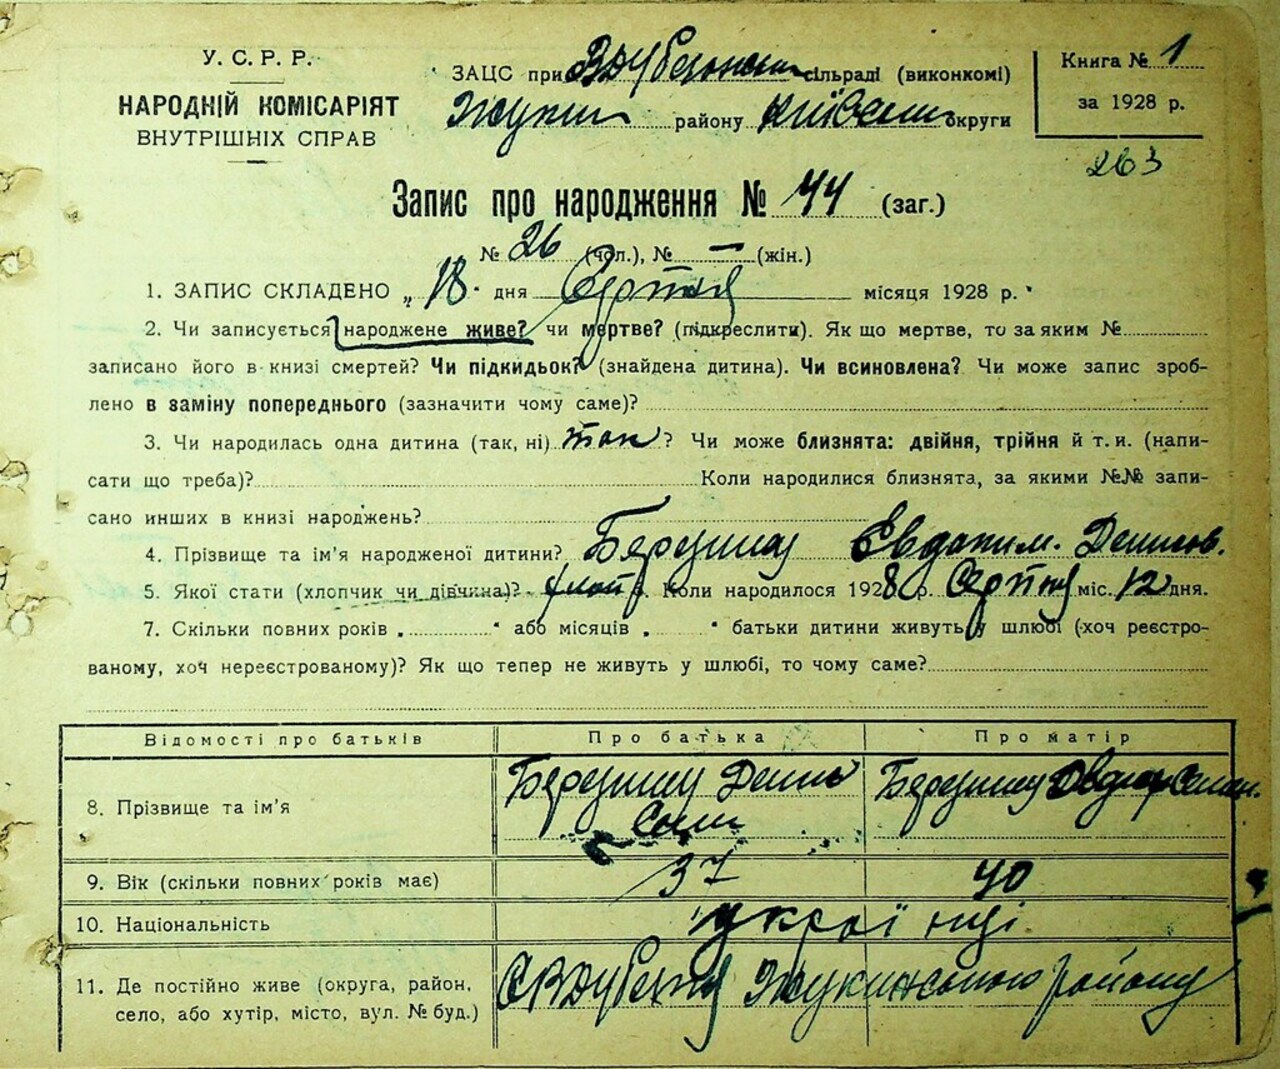 У. С. Р. Р.
НАРОДНІЙ КОМІСАРІЯТ
ВНУТРІШНІХ СПРАВ
ЗАЦС при сільраді (виконкомі)
району округи
Книга № 1
за 1928 р.
263
Запис про народження № 44 (заг.)
№ 26 (чол.), № — (жін.)
1. ЗАПИС СКЛАДЕНО „ 18 " дня Серпня місяця 1928 р.
2. Чи записується народжене живе? чи мертве? (підкреслити). Як що мертве, то за яким №
записано його в книзі смертей? Чи підкидьок? (знайдена дитина). Чи всиновлена? Чи може запис зроб-
лено в заміну попереднього (зазначити чому саме)?
3. Чи народилась одна дитина (так, ні) так ? Чи може близнята: двійня, трійня й т. и. (напи-
сати що треба)? Коли народилися близнята, за якими №№ запи-
сано инших в книзі народжень?
4. Прізвище та ім'я народженої дитини? Евдоким. Денисов.
5. Якої стати (хлопчик чи дівчина)? Коли народилося 1928 р. Серпня міс. 12 дня.
7. Скільки повних років „ " або місяців „ " батьки дитини живуть у шлюбі (хоч реєстро-
ваному, хоч нереєстрованому)? Як що тепер не живуть у шлюбі, то чому саме?
Відомості про батьків Про батька Про матір
8. Прізвище та ім'я
9. Вік (скільки повних років має) 37 40
10. Національність українці
11. Де постійно живе (округа, район, Жукинського району
село, або хутір, місто, вул. № буд.)